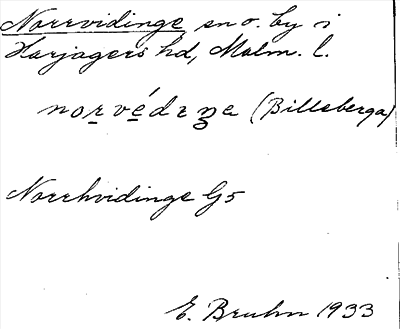 Norrvidinge sn o. by i
Harjagers hd, Malm. l.
(Billeberga)
Norrhvidinge G5
E. Bruhn 1933